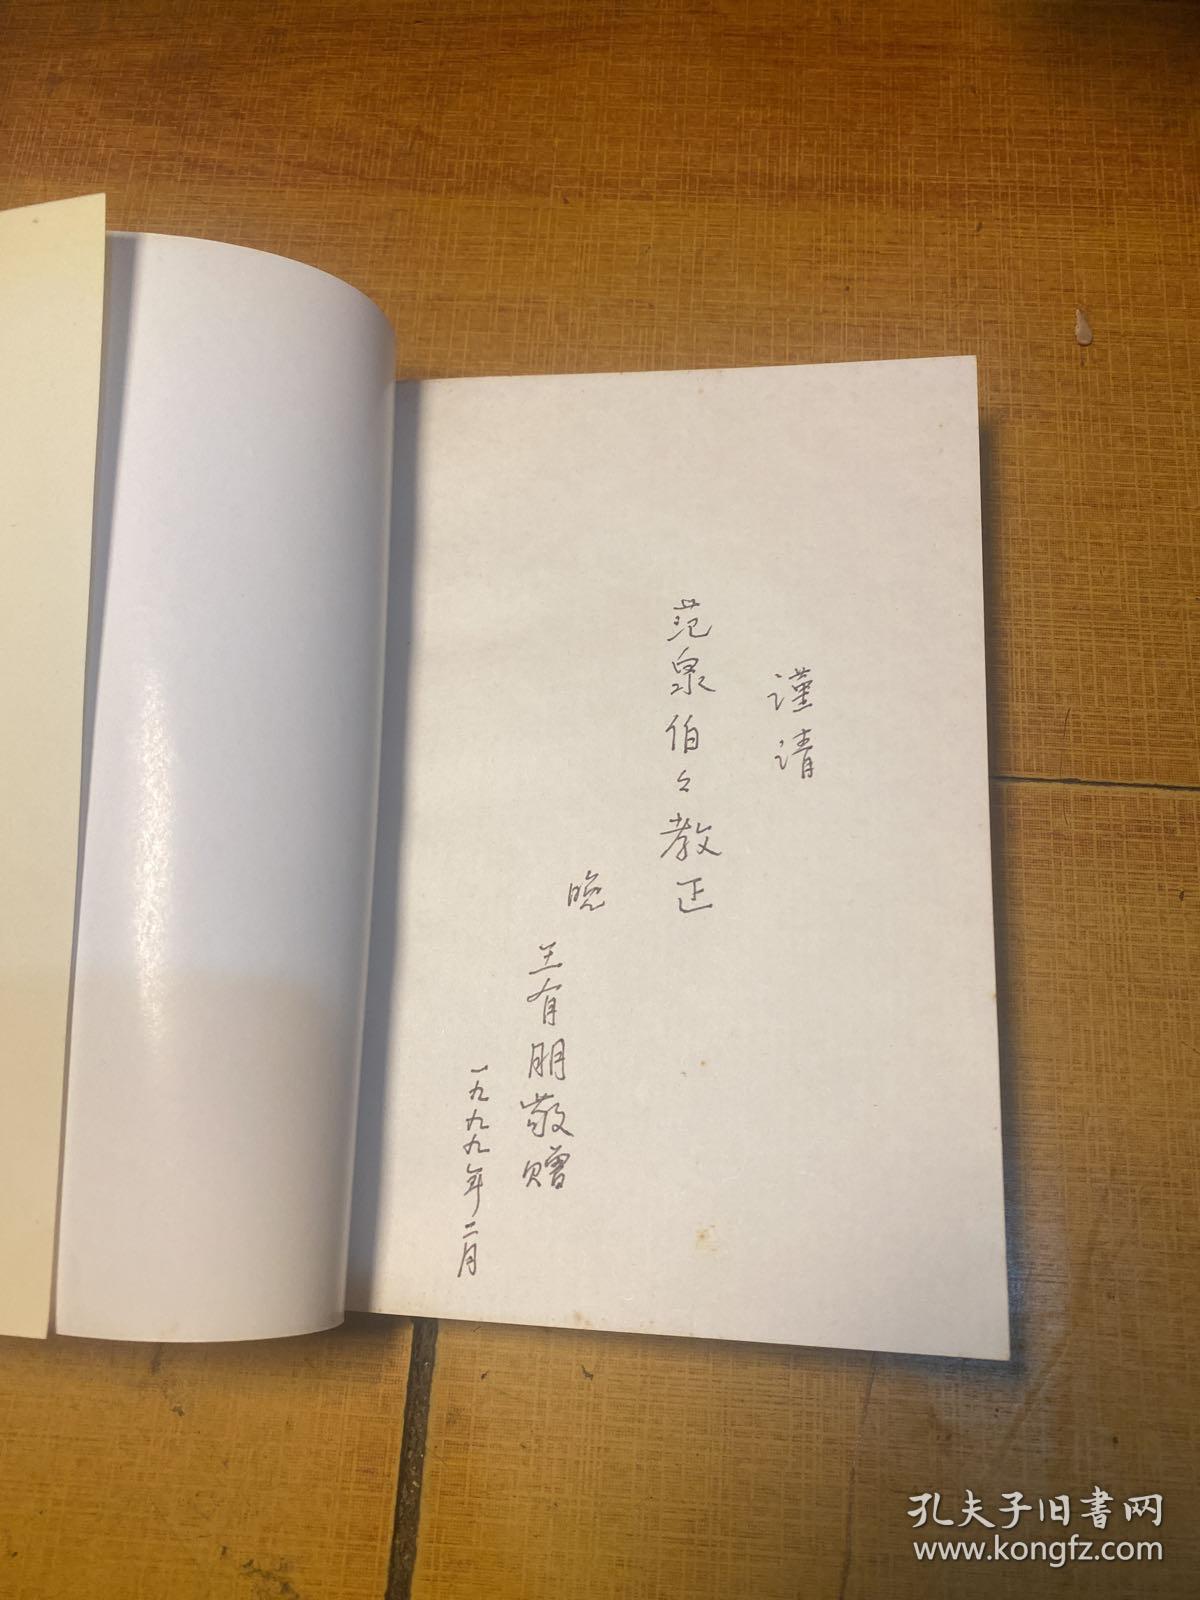 谨请
范泉伯々教正
晚
王有朋敬赠
一九九九年二月
孔夫子旧書网
www.kongfz.com